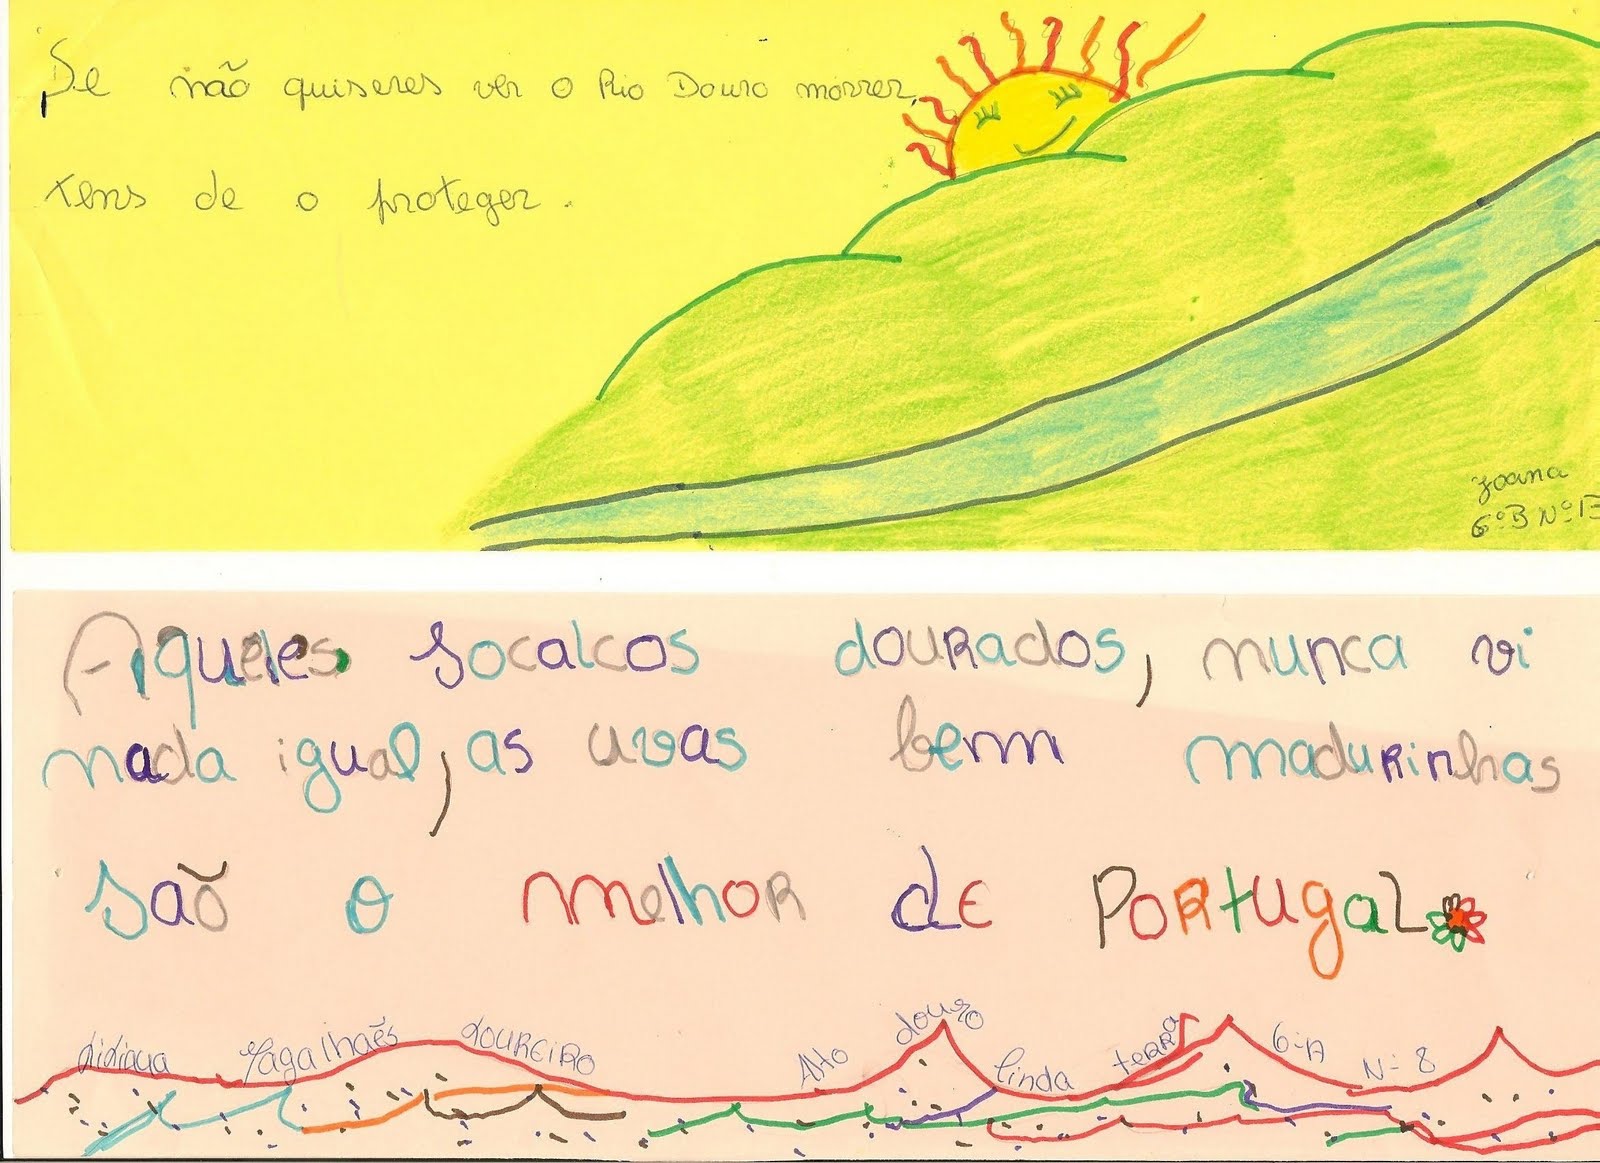 Se não quiseres ver o Rio Douro morrer,
tens de o proteger.
Joana
6ºB Nº
Aqueles socalcos dourados, nunca vi
nada igual, as uvas bem madurinhas
saõ o melhor de Portugal
Magalhães Loureiro Alto douro linda terra 6-A N-8